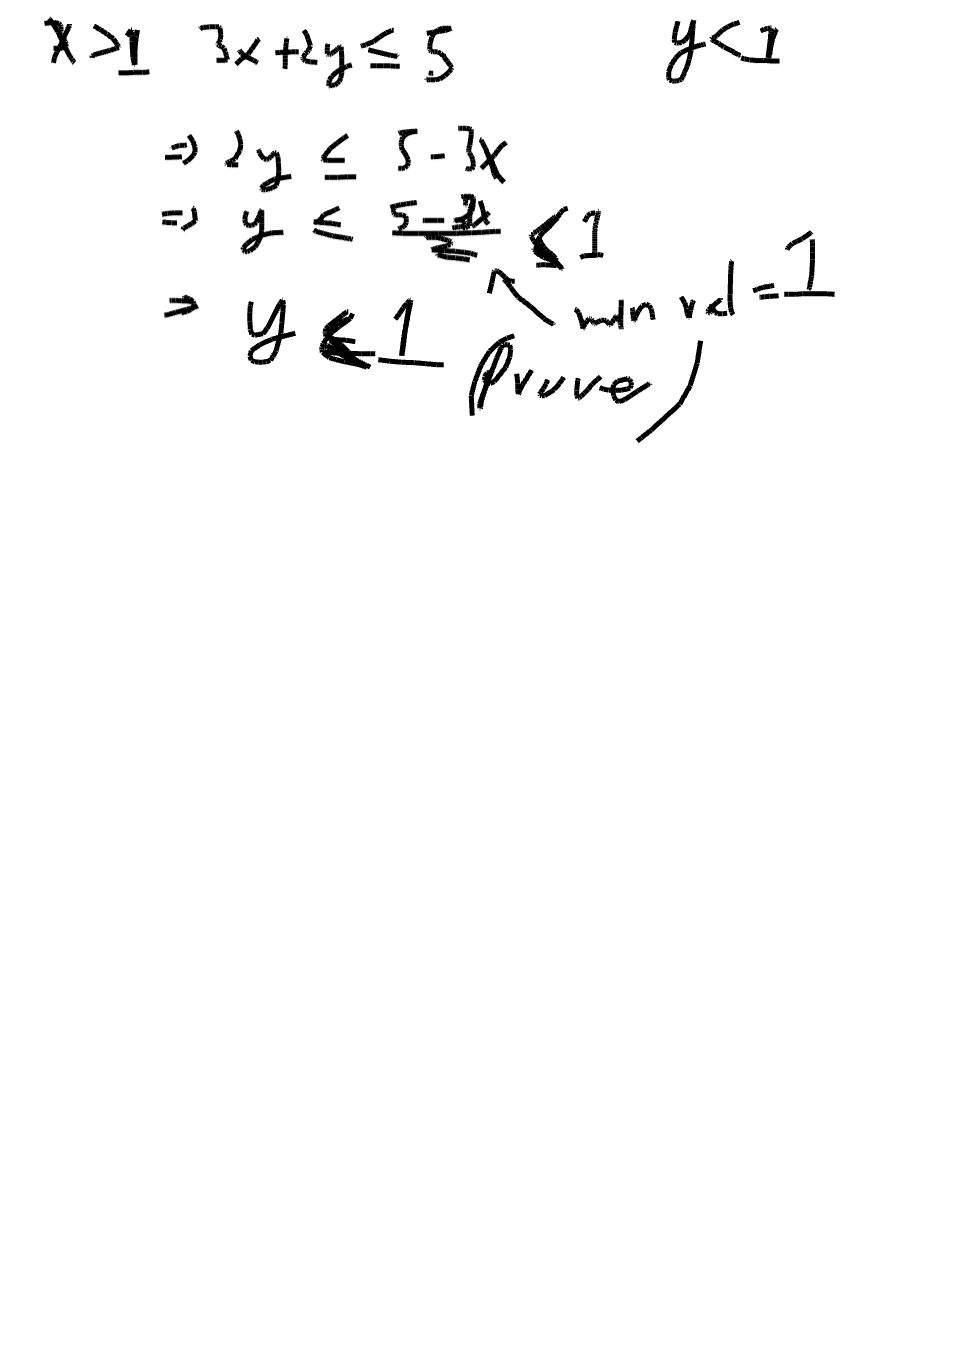 x > 1 3x + 2y ≤ 5 y < 1
⇒ 2y ≤ 5 - 3x
⇒ y ≤ (5 - 3x)/2 < 1
⇒ y < 1 min val = 1
(Prove)